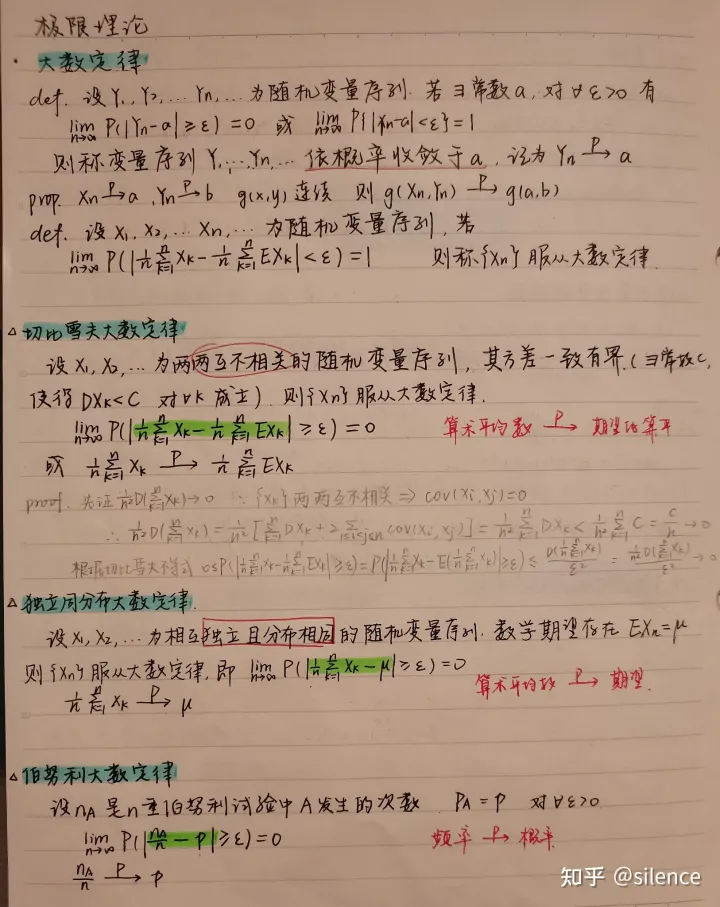 极限理论
· 大数定律
def. 设 Y₁, Y₂, … Yn, … 为随机变量序列. 若∃常数a, 对∀ε>0 有
lim_{n→∞} P(|Yn-a|≥ε)=0 或 lim_{n→∞} P{|Yn-a|<ε}=1
则称变量序列 Y₁, …, Yn, … 依概率收敛于a, 记为 Yn →^P a
prop. Xn →^P a, Yn →^P b g(x,y) 连续 则 g(Xn,Yn) →^P g(a,b)
def. 设 X₁, X₂, … Xn, … 为随机变量序列, 若
lim_{n→∞} P(|1/n ∑_{k=1}^n Xk - 1/n ∑_{k=1}^n EXk|<ε)=1 则称{Xn}服从大数定律.
△ 切比雪夫大数定律
设 X₁, X₂, … 为两两互不相关的随机变量序列, 其方差一致有界.(∃常数C,
使得 DXk<C 对∀k 成立). 则{Xn}服从大数定律.
lim_{n→∞} P(|1/n ∑_{k=1}^n Xk - 1/n ∑_{k=1}^n EXk|≥ε)=0 算术平均数 →^P 期望的算平
或 1/n ∑_{k=1}^n Xk →^P 1/n ∑_{k=1}^n EXk
proof. 先证 1/n² D(∑_{k=1}^n Xk)→0 ∵{Xk}两两互不相关 ⇒ cov(Xi,Xj)=0
∴ 1/n² D(∑_{k=1}^n Xk)=1/n² [∑_{k=1}^n DXk + 2∑_{1≤i<j≤n} cov(Xi,Xj)]=1/n² ∑_{k=1}^n DXk < 1/n² ∑_{k=1}^n C = C/n →0
根据切比雪夫不等式 0≤P(|1/n ∑_{k=1}^n Xk - 1/n ∑_{k=1}^n EXk|≥ε)=P(|1/n ∑_{k=1}^n Xk - E(1/n ∑_{k=1}^n Xk)|≥ε) ≤ D(1/n ∑_{k=1}^n Xk)/ε² = 1/n² D(∑_{k=1}^n Xk)/ε² →0
△ 独立同分布大数定律.
设 X₁, X₂, … 为相互独立且分布相同的随机变量序列. 数学期望存在 EXn=μ
则{Xn}服从大数定律, 即 lim_{n→∞} P(|1/n ∑_{k=1}^n Xk - μ|≥ε)=0
算术平均数 →^P 期望.
1/n ∑_{k=1}^n Xk →^P μ
△ 伯努利大数定律
设 nA 是n重伯努利试验中A发生的次数. PA=p 对∀ε>0
lim_{n→∞} P(|nA/n - p|≥ε)=0 频率 →^P 概率
nA/n →^P p
知乎 @silence